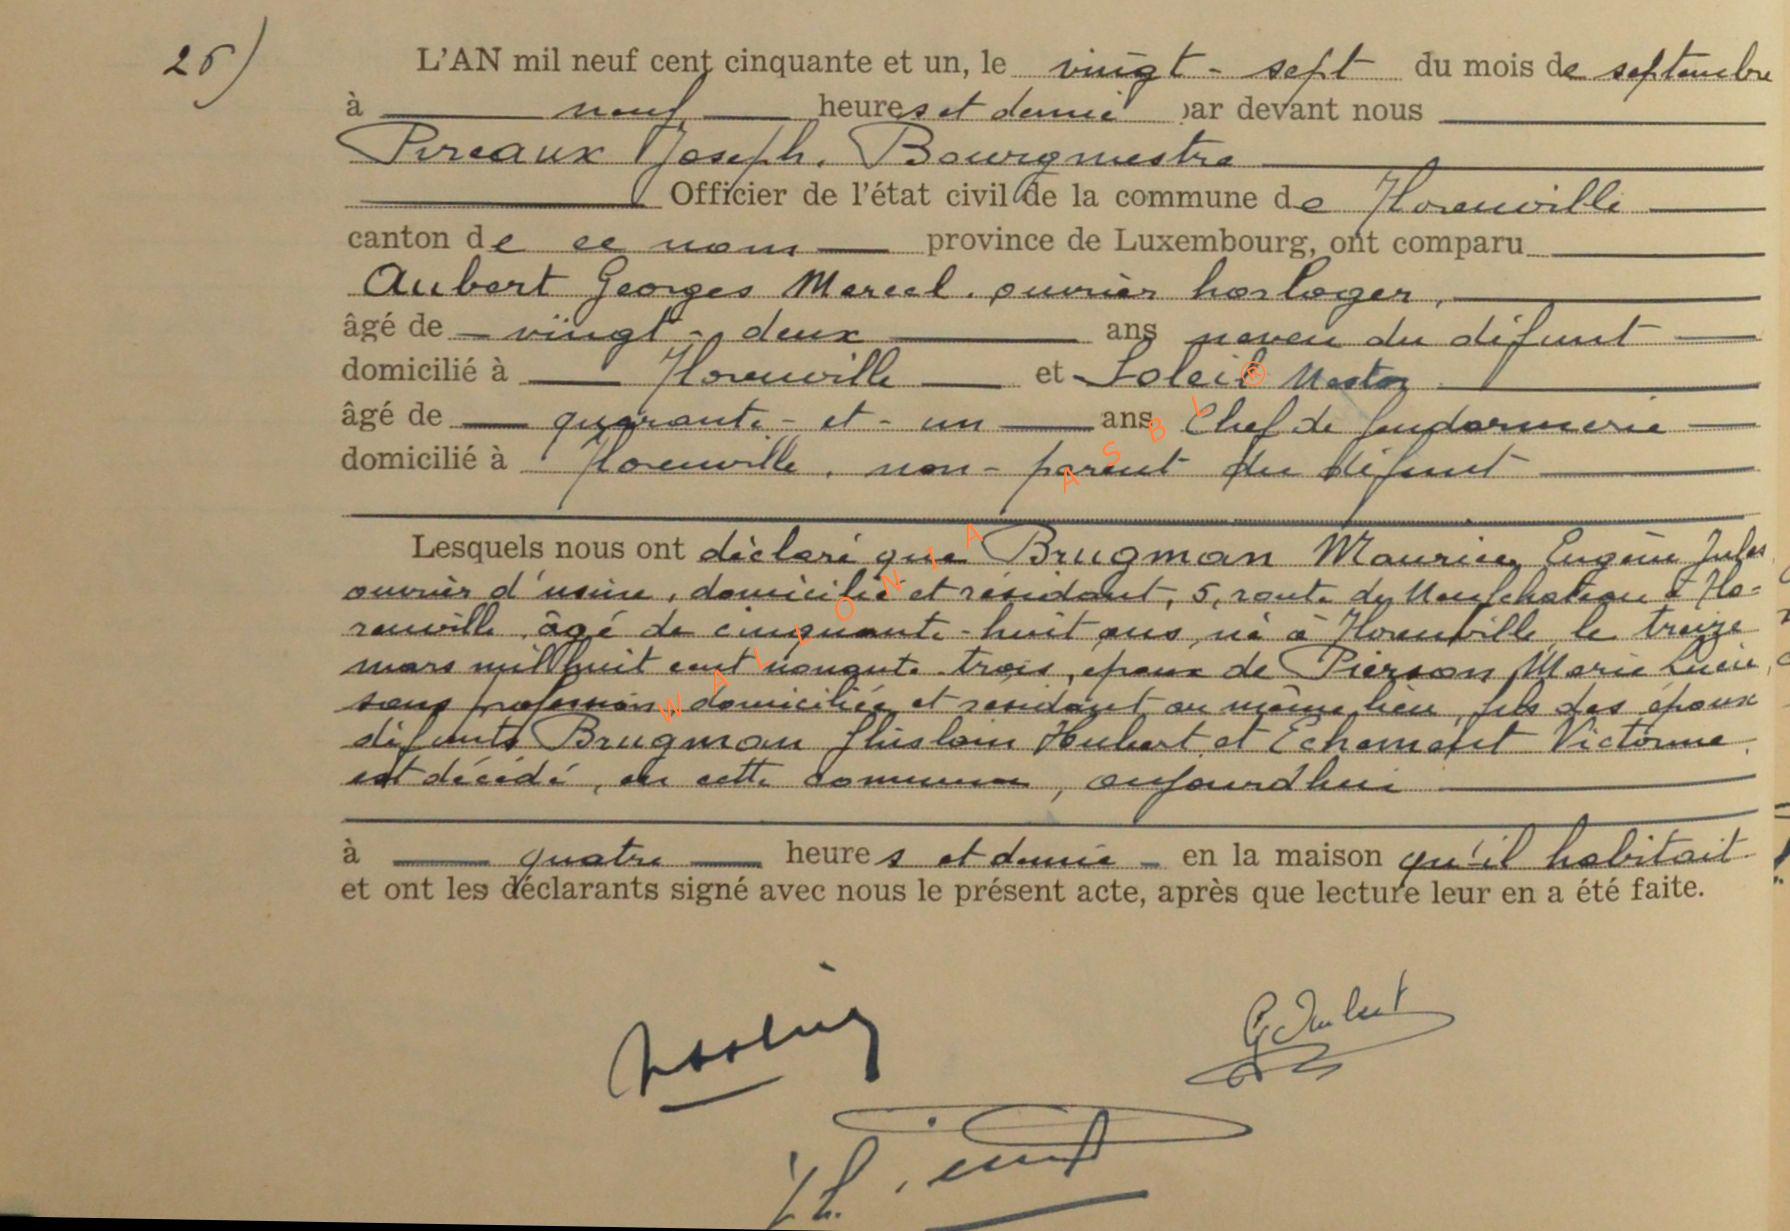 26)
L'AN mil neuf cent cinquante et un, le vingt-sept du mois de septembre
à neuf heures et demie par devant nous
Pireaux Joseph. Bourgmestre
Officier de l'état civil de la commune de Florenville
canton de ce nom province de Luxembourg, ont comparu
Aubert Georges Marcel. ouvrier horloger,
âgé de vingt-deux ans neveu du défunt
domicilié à Florenville et Soleil Nestor
âgé de quarante-et-un ans Chef de gendarmerie
domicilié à Florenville, non-parent du défunt
Lesquels nous ont déclaré que Brugman Maurice, Eugène Jules
ouvrier d'usine, domicilié et résidant, 5, route de Neufchateau à Flo=
renville, âgé de cinquante-huit ans, né à Florenville, le treize
mars mil huit cent nonante trois, époux de Pierson, Marie Lucie,
sans profession, domiciliée et résidant au même lieu, fils des époux
défunts Brugman Ghislain Hubert et Echement Victorine,
est décédé, en cette commune, aujourd'hui
à quatre heures et demie en la maison qu'il habitait
et ont les déclarants signé avec nous le présent acte, après que lecture leur en a été faite.
G. Aubert
WALLONIA ASBL ®